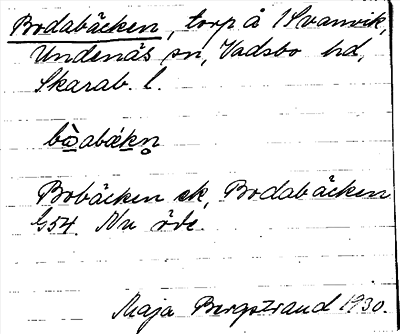 Bodabäcken, torp å 1 Svanvik,
Undenäs sn, Vadsbo hd,
Skarab. l.
bòabäkn̥
Bobäcken ek, Bodabäcken
G54. Nu öde.
Maja Bergstrand 1930.